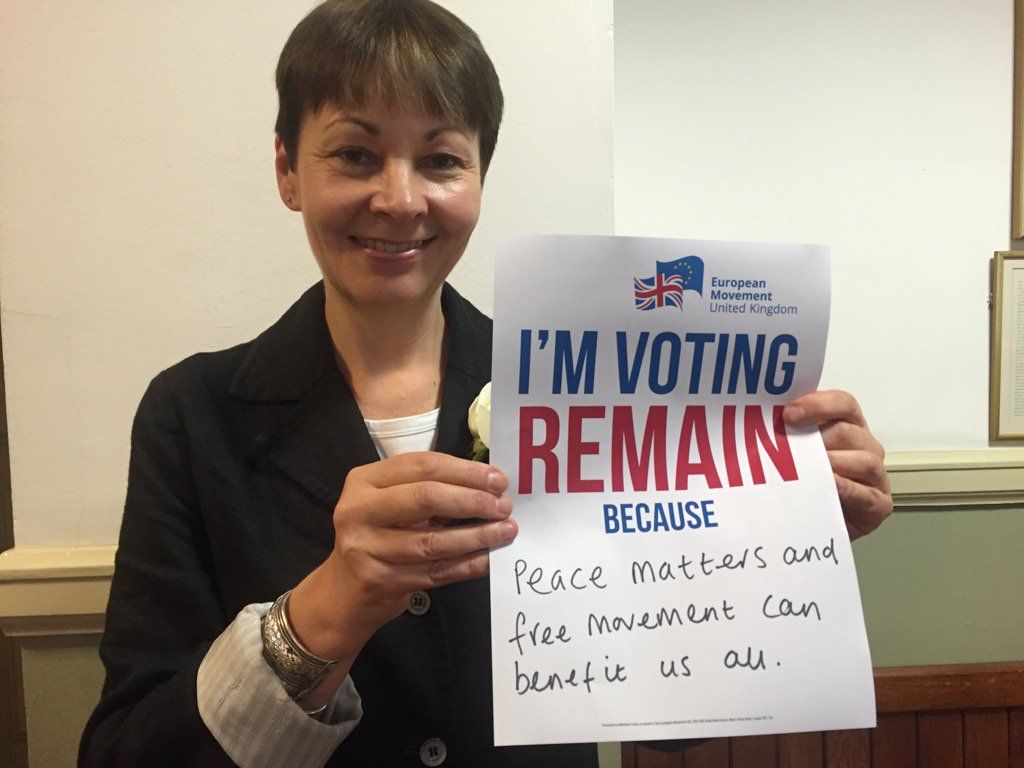 European
Movement
United Kingdom
I'M VOTING
REMAIN
BECAUSE
Peace matters and
free movement can
benefit us all.